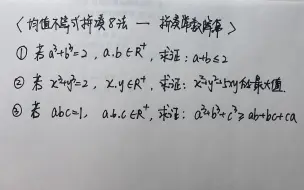 〈均值不等式拼凑8法 — 拼凑常数降幂〉
① 若 a³+b³=2, a.b∈R⁺, 求证: a+b≤2
② 若 x³+y³=2, x.y∈R⁺, 求证: x²+y²+5xy的最大值.
③ 若 abc=1, a.b.c∈R⁺, 求证: a³+b³+c³≥ab+bc+ca